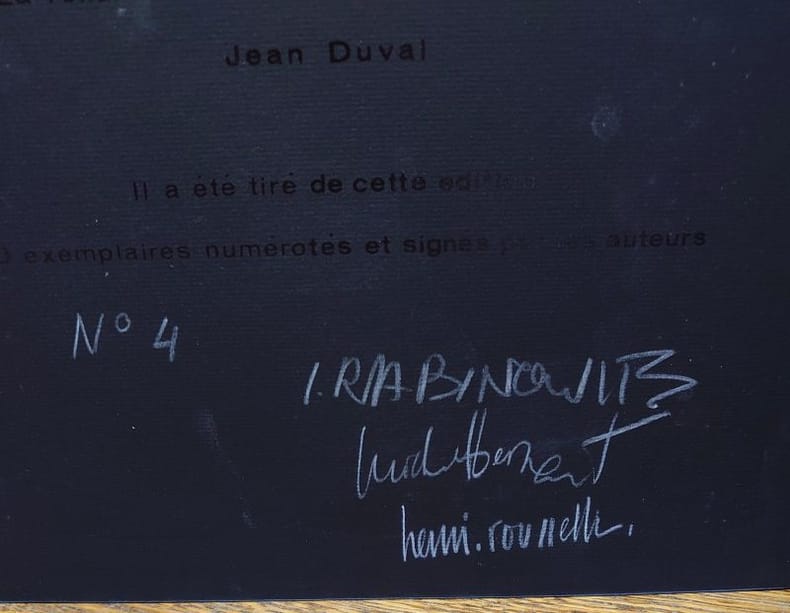 Jean Duval
Il a été tiré de cette edition
exemplaires numérotés et signés par les auteurs
N° 4
I. RABINOWITZ
henri.rousselle.